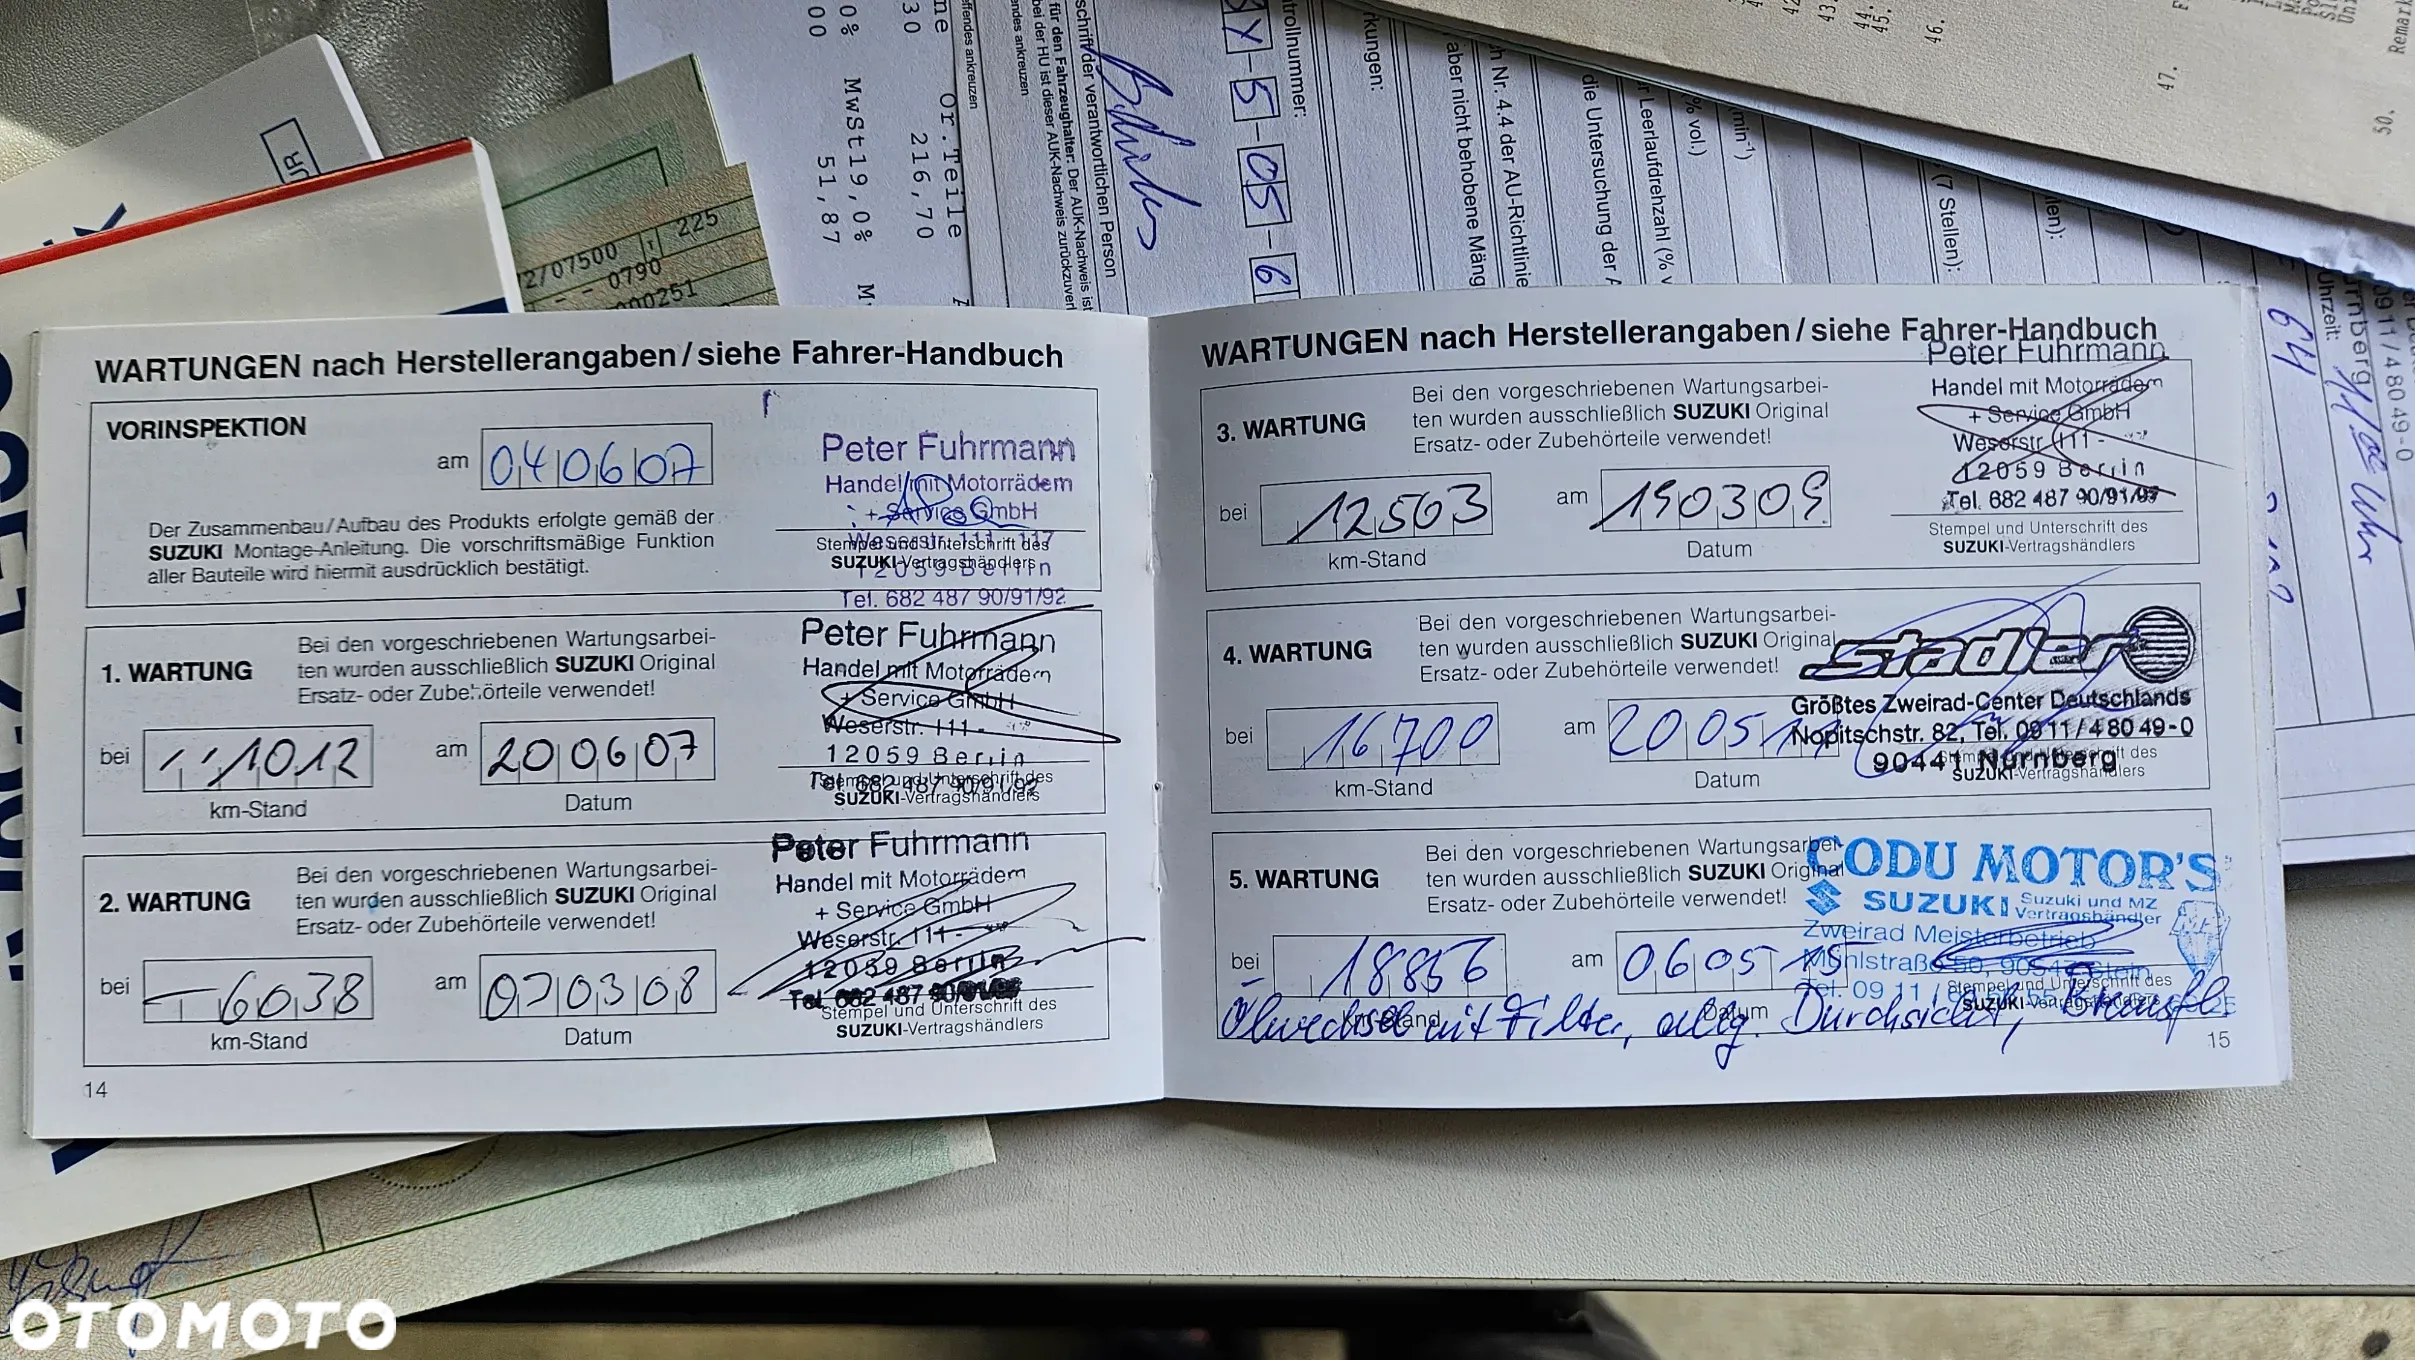 WARTUNGEN nach Herstellerangaben/siehe Fahrer-Handbuch
VORINSPEKTION
am 040607
Der Zusammenbau/Aufbau des Produkts erfolgte gemäß der
SUZUKI Montage-Anleitung. Die vorschriftsmäßige Funktion
aller Bauteile wird hiermit ausdrücklich bestätigt.
Peter Fuhrmann
Handel mit Motorrädern
+ Service GmbH
Weserstr. 111 - 117
12059 Berlin
Tel. 682 487 90/91/92
Stempel und Unterschrift des
SUZUKI-Vertragshändlers
1. WARTUNG
Bei den vorgeschriebenen Wartungsarbei-
ten wurden ausschließlich SUZUKI Original
Ersatz- oder Zubehörteile verwendet!
bei 1012 am 200607
km-Stand Datum
Peter Fuhrmann
Handel mit Motorrädern
+ Service GmbH
Weserstr. 111 -
12059 Berlin
Tel. 682 487 90/91/92
Stempel und Unterschrift des
SUZUKI-Vertragshändlers
2. WARTUNG
Bei den vorgeschriebenen Wartungsarbei-
ten wurden ausschließlich SUZUKI Original
Ersatz- oder Zubehörteile verwendet!
bei 6038 am 070308
km-Stand Datum
Peter Fuhrmann
Handel mit Motorrädern
+ Service GmbH
Weserstr. 111 -
12059 Berlin
Tel. 682 487
Stempel und Unterschrift des
SUZUKI-Vertragshändlers
14
WARTUNGEN nach Herstellerangaben/siehe Fahrer-Handbuch
3. WARTUNG
Bei den vorgeschriebenen Wartungsarbei-
ten wurden ausschließlich SUZUKI Original
Ersatz- oder Zubehörteile verwendet!
bei 12503 am 190309
km-Stand Datum
Peter Fuhrmann
Handel mit Motorrädern
+ Service GmbH
Weserstr. 111 -
12059 Berlin
Tel. 682 487 90/91/92
Stempel und Unterschrift des
SUZUKI-Vertragshändlers
4. WARTUNG
Bei den vorgeschriebenen Wartungsarbei-
ten wurden ausschließlich SUZUKI Original
Ersatz- oder Zubehörteile verwendet!
bei 16700 am 2005
km-Stand Datum
stadler
Größtes Zweirad-Center Deutschlands
Nopitschstr. 82, Tel. 0911/4 80 49-0
90441 Nürnberg
Stempel und Unterschrift des
SUZUKI-Vertragshändlers
5. WARTUNG
Bei den vorgeschriebenen Wartungsarbei-
ten wurden ausschließlich SUZUKI Original
Ersatz- oder Zubehörteile verwendet!
bei 18856 am 060515
km-Stand Datum
CODU MOTOR'S
SUZUKI Suzuki und MZ
Vertragshändler
Zweirad Meisterbetrieb
Mühlstraße 50, 90547 Stein
Tel. 09 11 /
Stempel und Unterschrift des
SUZUKI-Vertragshändlers
Ölwechsel mit Filter, allg. Durchsicht,
15
trollnummer:
5-05-6
rkungen:
aber nicht behobene Mäng
h Nr. 4.4 der AU-Richtlinie
die Untersuchung der A
r Leerlaufdrehzahl (% v
% vol.)
min⁻¹)
(7 Stellen):
len):
schrift der verantwortlichen Person
für den Fahrzeughalter: Der AUK-Nachweis ist
bei der HU ist dieser AUK-Nachweis
endes ankreuzen
Or.Teile
216,70
MwSt19,0%
51,87
2/07500 225
0790
000251
43.
44.
45.
46.
47.
50. Remark
Uhrzeit:
0911/48049-0
64
OTOMOTO